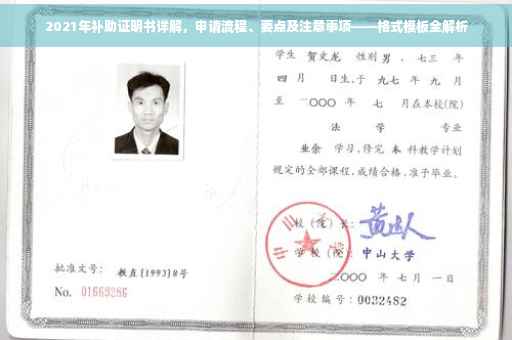 2021年补助证明书详解，申请流程、要点及注意事项——格式模板全解析
学生 贺文龙 性别 男 ，七三 年
四 月 日生,于 九七 年 九 月
至 二〇〇〇 年 七 月在本校(院)
法 学 专业
业余 学习,修完 本 科教学计划
规定的全部课程,成绩合格,准予毕业。
校（院）长：
学 校（院）：中山大学
二〇〇〇 年 七 月 一 日
学校编号：0032482
批准文号： 教直(1993)8号
No. 01669286
中山大学